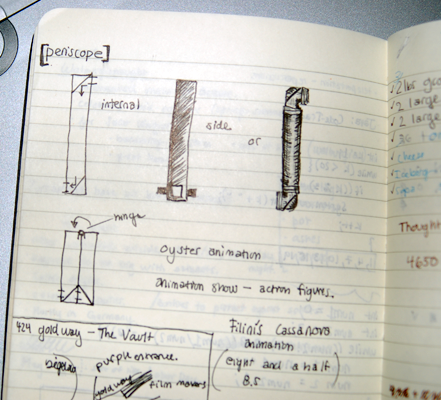 [periscope]
internal
side
or
hinge
oyster animation
animation show - action figures.
424 gold way - The Vault
purple entrance.
gold way
film movers
Filini's Cassanova
animation
eight and a half
8.5
2 lbs
2 large
2 large
cheese
Thought
4650